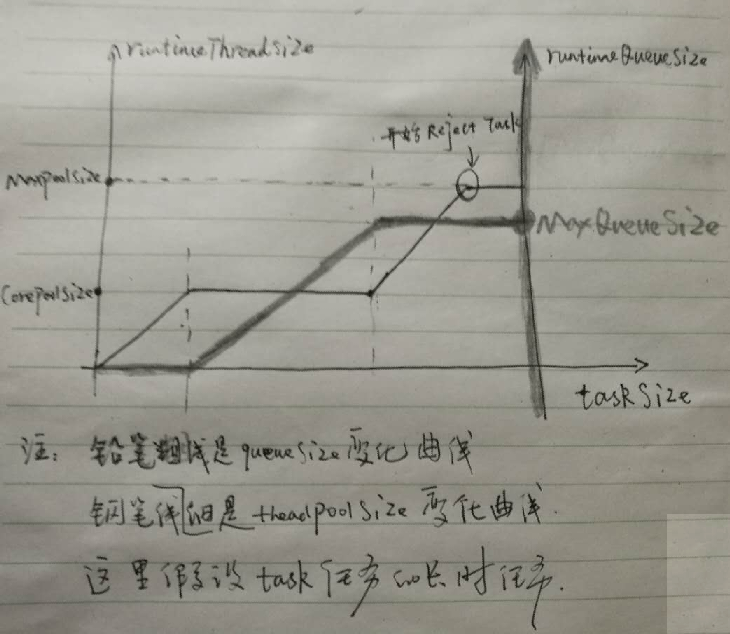 runtimeThreadSize
runtimeQueueSize
开始Reject Task
Maxpoolsize
MaxQueueSize
Corepoolsize
taskSize
注: 铅笔粗线是queuesize变化曲线
钢笔线细是theadpoolsize变化曲线.
这里假设task任务 长时任务.